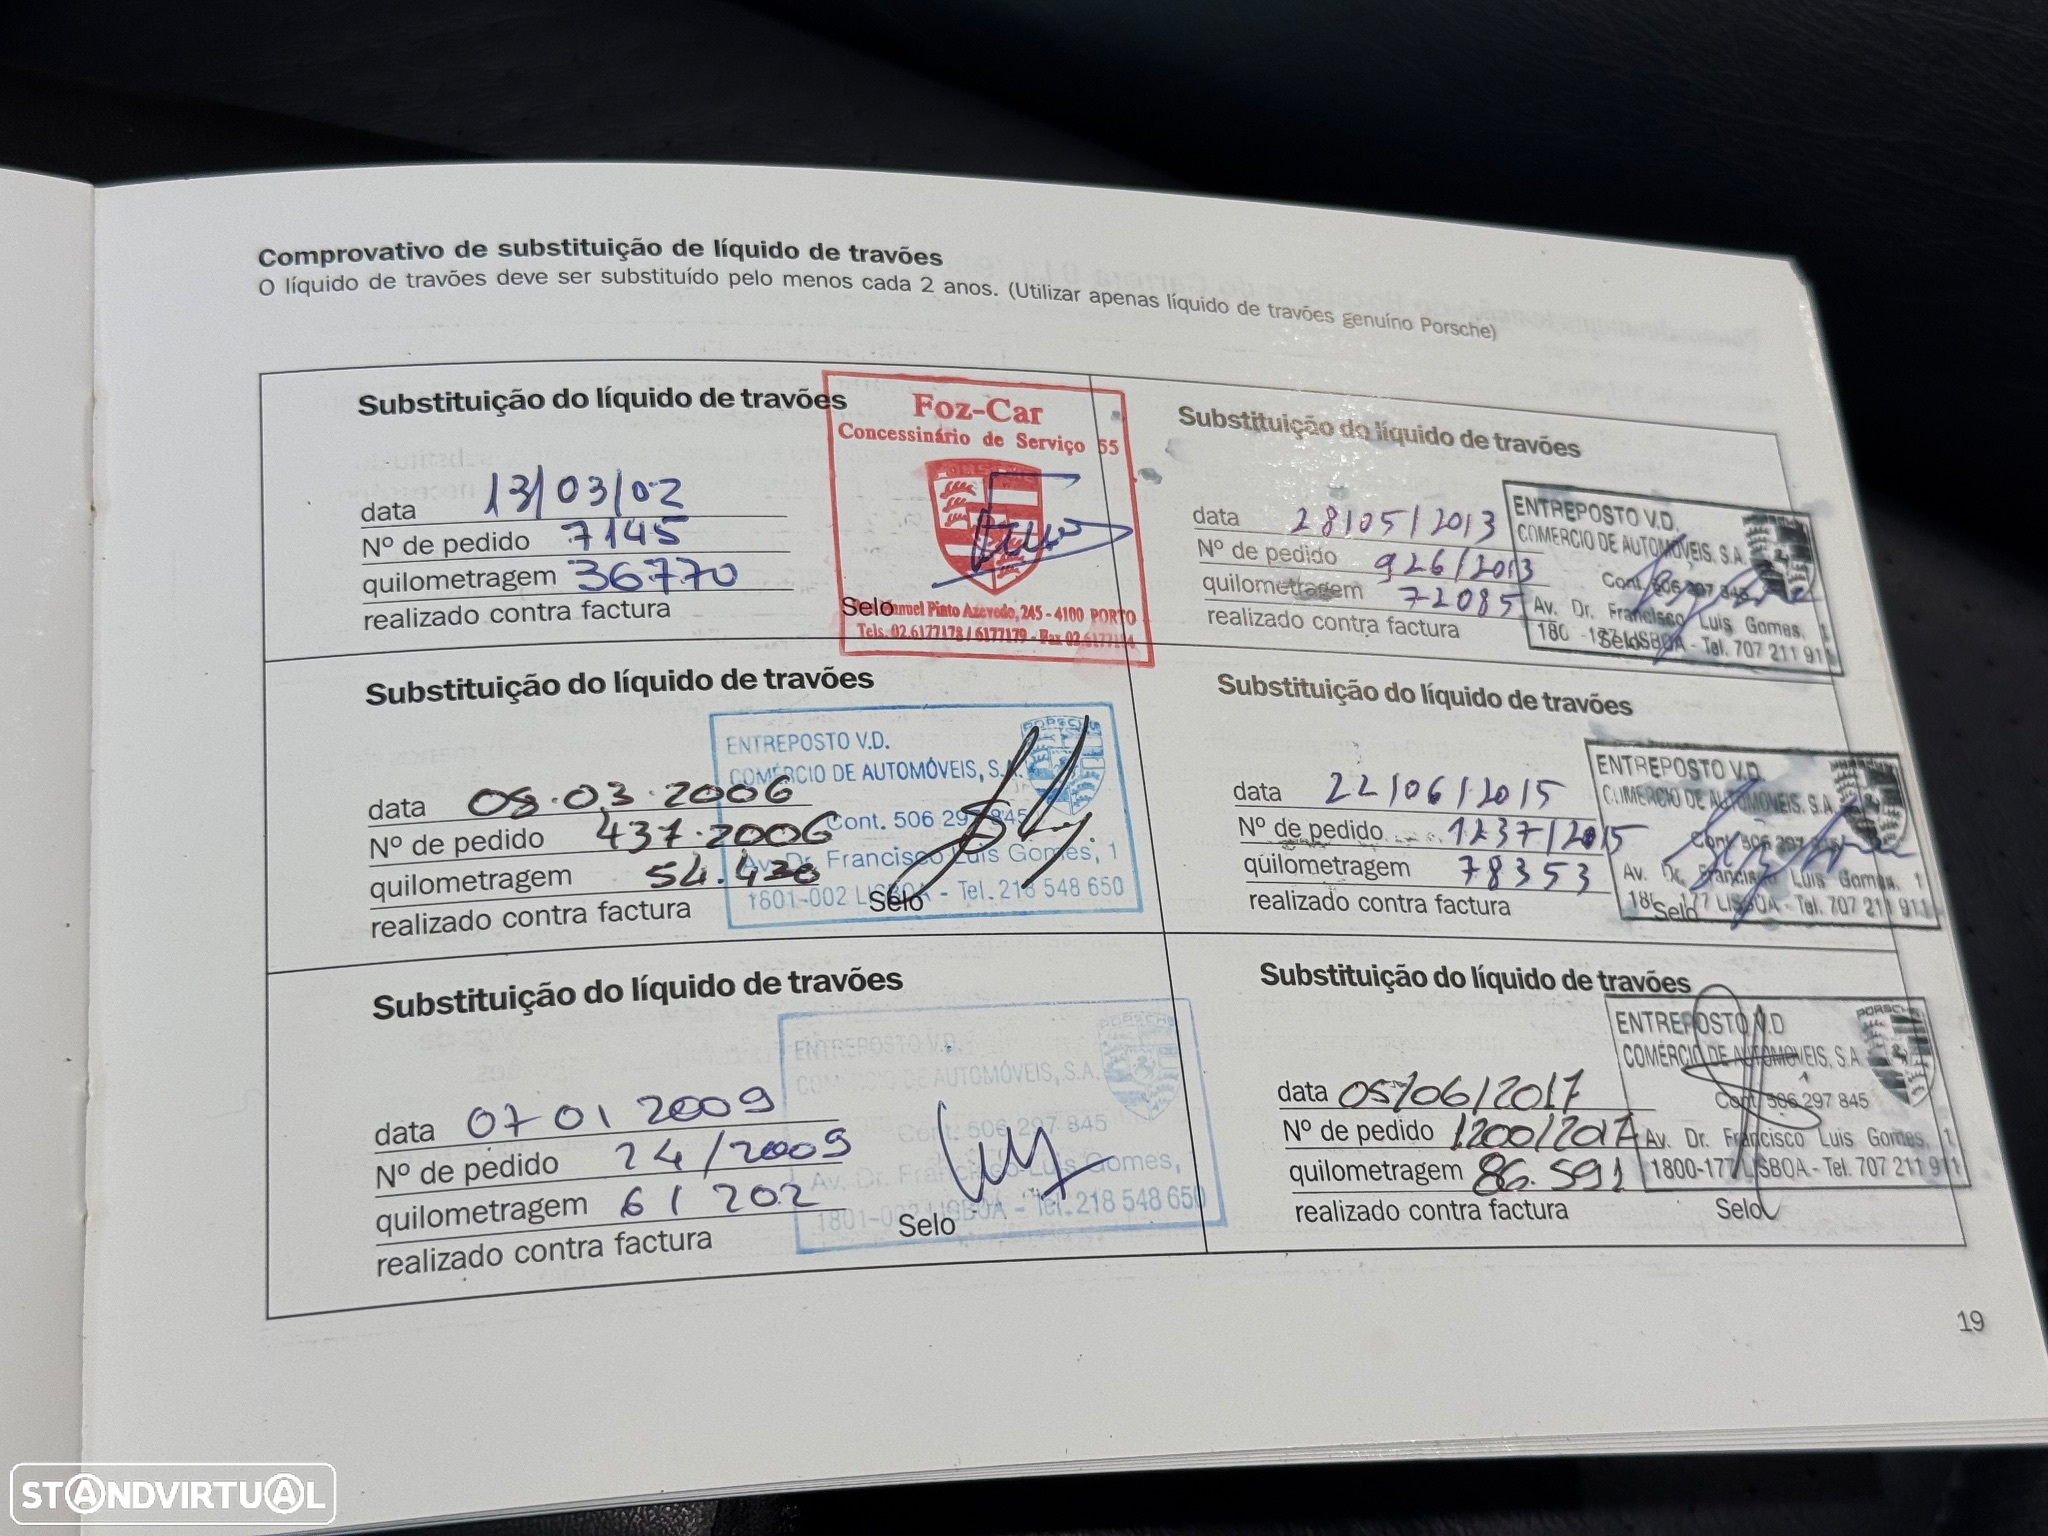 Comprovativo de substituição de líquido de travões
O líquido de travões deve ser substituído pelo menos cada 2 anos. (Utilizar apenas líquido de travões genuíno Porsche)
Substituição do líquido de travões
data 13/03/02
Nº de pedido 7145
quilometragem 36770
realizado contra factura
Selo
Foz-Car
Concessinário de Serviço 55
Pinto Azevedo, 245 - 4100 PORTO
Tels. 02.6177178 / 6177179 - Fax 02.
Substituição do líquido de travões
data 28/05/2013
Nº de pedido 926/2013
quilometragem 72085
realizado contra factura
Selo
ENTREPOSTO V.D.
COMÉRCIO DE AUTOMÓVEIS, S.A.
Cont. 506 297 845
Av. Dr. Francisco Luis Gomes, 1
LISBOA - Tel. 707 211 911
Substituição do líquido de travões
data 08.03.2006
Nº de pedido 437.2006
quilometragem 54.430
realizado contra factura
Selo
PORSCHE
ENTREPOSTO V.D.
COMÉRCIO DE AUTOMÓVEIS, S.A.
Cont. 506 297 845
Av. Dr. Francisco Luis Gomes, 1
1801-002 LISBOA - Tel. 218 548 650
Substituição do líquido de travões
data 22/06/2015
Nº de pedido 1237/2015
quilometragem 78353
realizado contra factura
Selo
ENTREPOSTO V.D.
COMÉRCIO DE AUTOMÓVEIS, S.A.
Cont. 506 297 845
Av. Dr. Francisco Luis Gomes, 1
LISBOA - Tel. 707 211 911
Substituição do líquido de travões
data 07 01 2009
Nº de pedido 24/2009
quilometragem 61202
realizado contra factura
Selo
PORSCHE
ENTREPOSTO V.D.
COMÉRCIO DE AUTOMÓVEIS, S.A.
Cont. 506 297 845
Av. Dr. Francisco Luis Gomes,
1801-002 LISBOA - Tel. 218 548 650
Substituição do líquido de travões
data 05/06/2017
Nº de pedido 1200/2017
quilometragem 86.591
realizado contra factura
Selo
PORSCHE
ENTREPOSTO V.D
COMÉRCIO DE AUTOMÓVEIS, S.A.
Cont. 506 297 845
Av. Dr. Francisco Luis Gomes, 1
1800-177 LISBOA - Tel. 707 211 911
19
STANDVIRTUAL